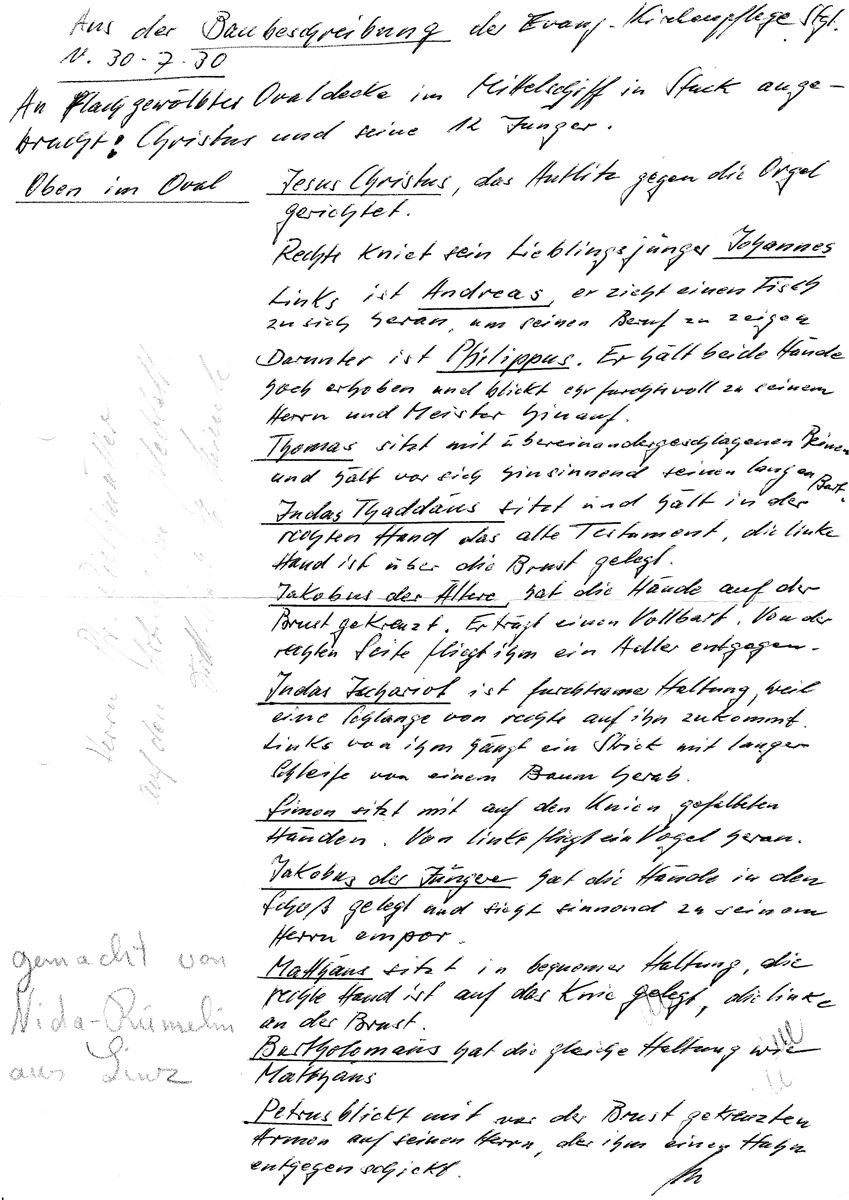 Aus der Baubeschreibung der Evang. Kirchenpflege Stgt.
v. 30-7-30
An flachgewölbter Ovaldecke im Mittelschiff in Stuck ange-
bracht: Christus und seine 12 Jünger.
Oben im Oval
Jesus Christus, das Antlitz gegen die Orgel
gerichtet.
Rechts kniet sein Lieblingsjünger Johannes
Links ist Andreas, er zieht einen Fisch
zu sich heran, um seinen Beruf zu zeigen
Darunter ist Philippus. Er hält beide Hände
hoch erhoben und blickt ehrfurchtsvoll zu seinem
Herrn und Meister hinauf.
Thomas sitzt mit übereinandergeschlagenen Beinen
und hält vor sich hinsinnend seinen langen Bart.
Judas Thaddäus sitzt und hält in der
rechten Hand das alte Testament, die linke
Hand ist über die Brust gelegt.
Jakobus der Ältere, hat die Hände auf der
Brust gekreuzt. Er trägt einen Vollbart. Von der
rechten Seite fliegt ihm ein Adler entgegen.
Judas Ischariot ist furchtsamer Haltung, weil
eine Schlange von rechts auf ihn zukommt.
Links von ihm hängt ein Strick mit langer
Schleife von einem Baum herab.
Simon sitzt mit auf den Knien gefalteten
Händen. Von links fliegt ein Vogel heran.
Jakobus der Jüngere hat die Hände in den
Schoß gelegt und sieht sinnend zu seinem
Herrn empor.
Matthäus sitzt in bequemer Haltung, die
rechte Hand ist auf das Knie gelegt, die linke
an der Brust.
Bartholomäus hat die gleiche Haltung wie
Matthäus
Petrus blickt mit vor der Brust gekreuzten
Armen auf seinen Herrn, der ihm einen Hahn
entgegenschickt.
gemacht von
Nida-Rümelin
aus Linz
Herrn
auf den